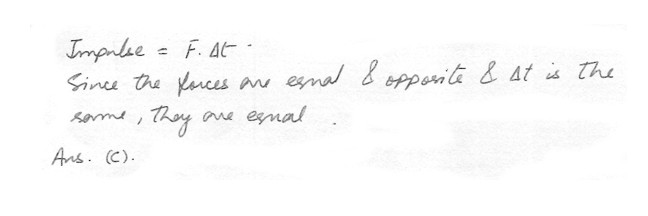 Impulse = F. Δt.
Since the forces are equal & opposite & Δt is the
same, they are equal.
Ans. (C).